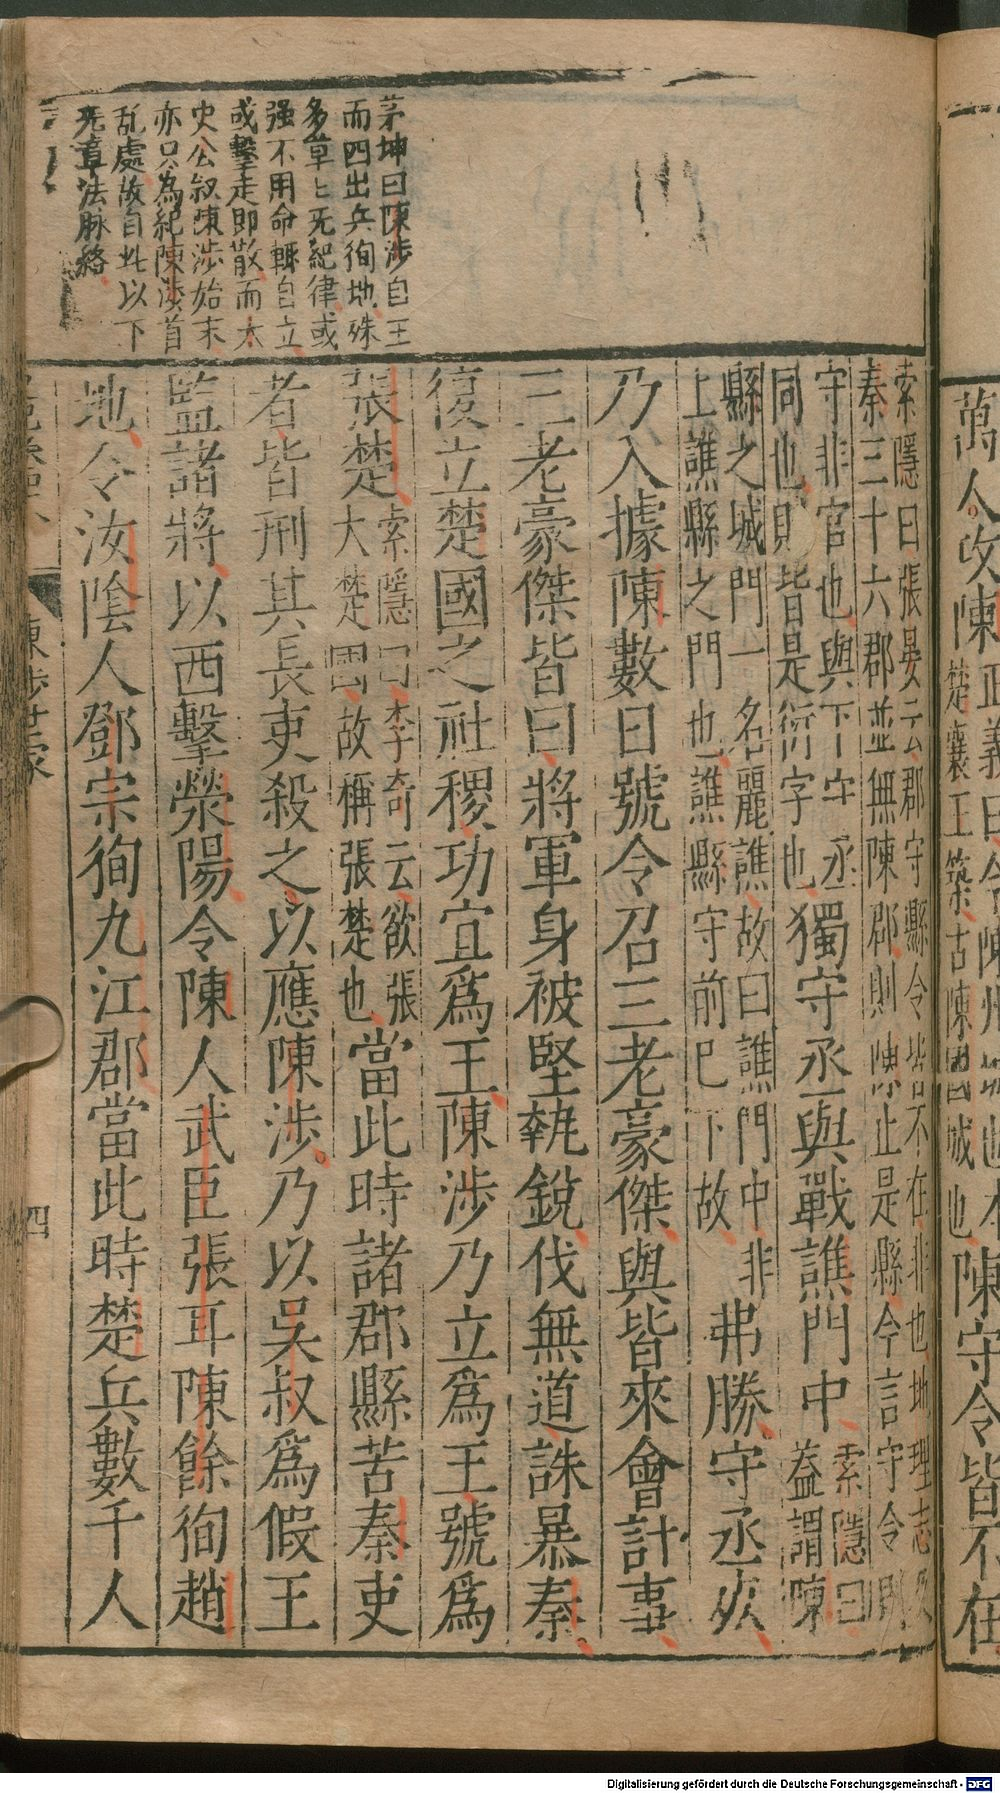 萬人攻陳正義曰今陳州城也本
楚襄王築古陳國城也陳守令皆不在
茅坤曰陳涉自王
而四出兵徇地殊
多草〻无紀律或
强不用命輒自立
或擊走即散而太
史公叙陳涉始末
亦只為紀陳涉首
乱處故自此以下
无章法脉絡
索隱曰張晏云郡守縣令皆不在非也地理志及
秦三十六郡並無陳郡則陳止是縣令言守令則
守非官也與下守丞
同也則皆是衍字也獨守丞與戰譙門中索隱曰
蓋謂陳
縣之城門一名麗譙故曰譙門中非
上譙縣之門也譙縣守前已下故弗勝守丞死
乃入據陳數日號令召三老豪傑與皆來會計事
三老豪傑皆曰將軍身被堅執銳伐無道誅暴秦
復立楚國之社稷功宜爲王陳涉乃立爲王號爲
張楚索隱曰李奇云欲張
大楚國故稱張楚也當此時諸郡縣苦秦吏
者皆刑其長吏殺之以應陳涉乃以吳叔爲假王
監諸將以西擊滎陽令陳人武臣張耳陳餘徇趙
地令汝陰人鄧宗徇九江郡當此時楚兵數千人
陳涉世家
四
Digitalisierung gefördert durch die Deutsche Forschungsgemeinschaft - DFG